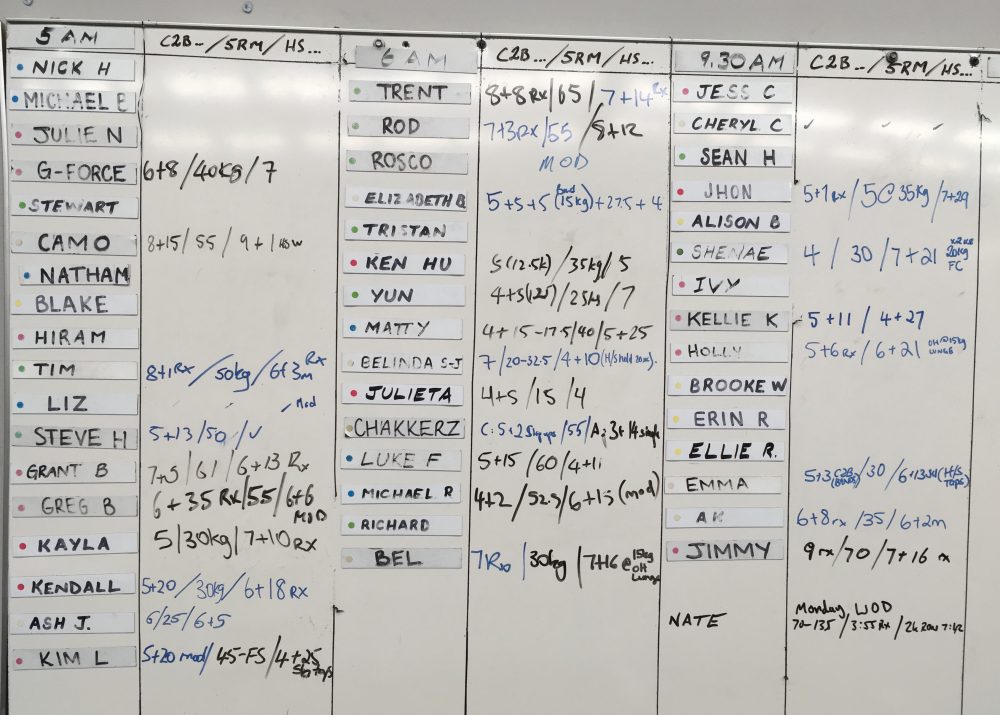 5 AM C2B../5RM/HS...
NICK H
MICHAEL B
JULIE N
G-FORCE 6+8/40kg/7
STEWART
CAMO 8+15/55/9+1 HSW
NATHAN
BLAKE
HIRAM
TIM 8+1 Rx/50kg/6+3m Rx
LIZ Mod
STEVE H 5+13/50/✓
GRANT B 7+5/61/6+13 Rx
GREG B 6+35 Rx/55/6+6 MOD
KAYLA 5/30kg/7+10 RX
KENDALL 5+20/30kg/6+18 RX
ASH J. 6/25/6+5
KIM L 5+20 mod/45-FS/4+25
6 AM C2B.../5RM/HS...
TRENT 8+8 Rx/65/7+14 Rx
ROD 7+3 Rx/55/8+12
ROSCO MOD
ELIZABETH B 5+5+5 (15kg)+27.5+4
TRISTAN
KEN HU 5(12.5k)/35kg/5
YUN 4+5(12.5)/25kg/7
MATTY 4+15-17.5/40/5+25
BELINDA S-J 7/20-32.5/4+10 (H/S hold 20m).
JULIETA 4+5/15/4
CHAKKERZ C: 5+2 /55/A: 3+14 single
LUKE F 5+15/60/4+11
MICHAEL R 4+2/52.5/6+15 (mod)
RICHARD
BEL 7Rx/30kg/7+16 @15kg OH Lunge
9.30AM C2B.../5RM/HS...
JESS C
CHERYL C ✓ ✓ ✓
SEAN H
JHON 5+7 Rx/5@35kg/7+29
ALISON B
SHENAE 4/30/7+21 x2 KB 20kg FC
IVY
KELLIE K 5+11/4+27
HOLLY 5+6 Rx/6+21 OH@15kg LUNGE
BROOKE W
ERIN R
ELLIE R.
EMMA 5+3 C2B (BANDS)/30/6+13 (H/S TAPS)
AK 6+8 rx/35/6+2m
JIMMY 9 rx/70/7+16 rx
NATE Monday WOD
70-135/3:55 Rx/2k Row 7:42